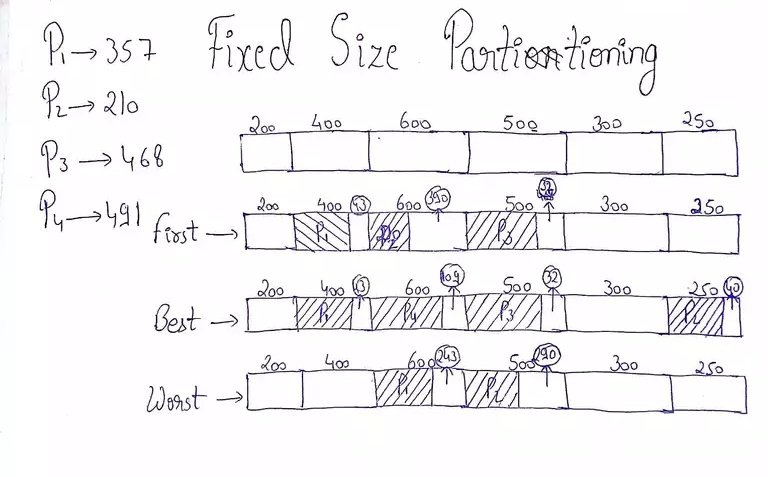 P1→357 Fixed Size Partitioning
P2→210
P3→468
P4→491
200 400 600 500 300 250
First→ 200 400 43 600 390 500 32 300 250
P1 P2 P3
Best→ 200 400 43 600 109 500 32 300 250 40
P1 P4 P3 P2
Worst→ 200 400 600 243 500 290 300 250
P1 P2